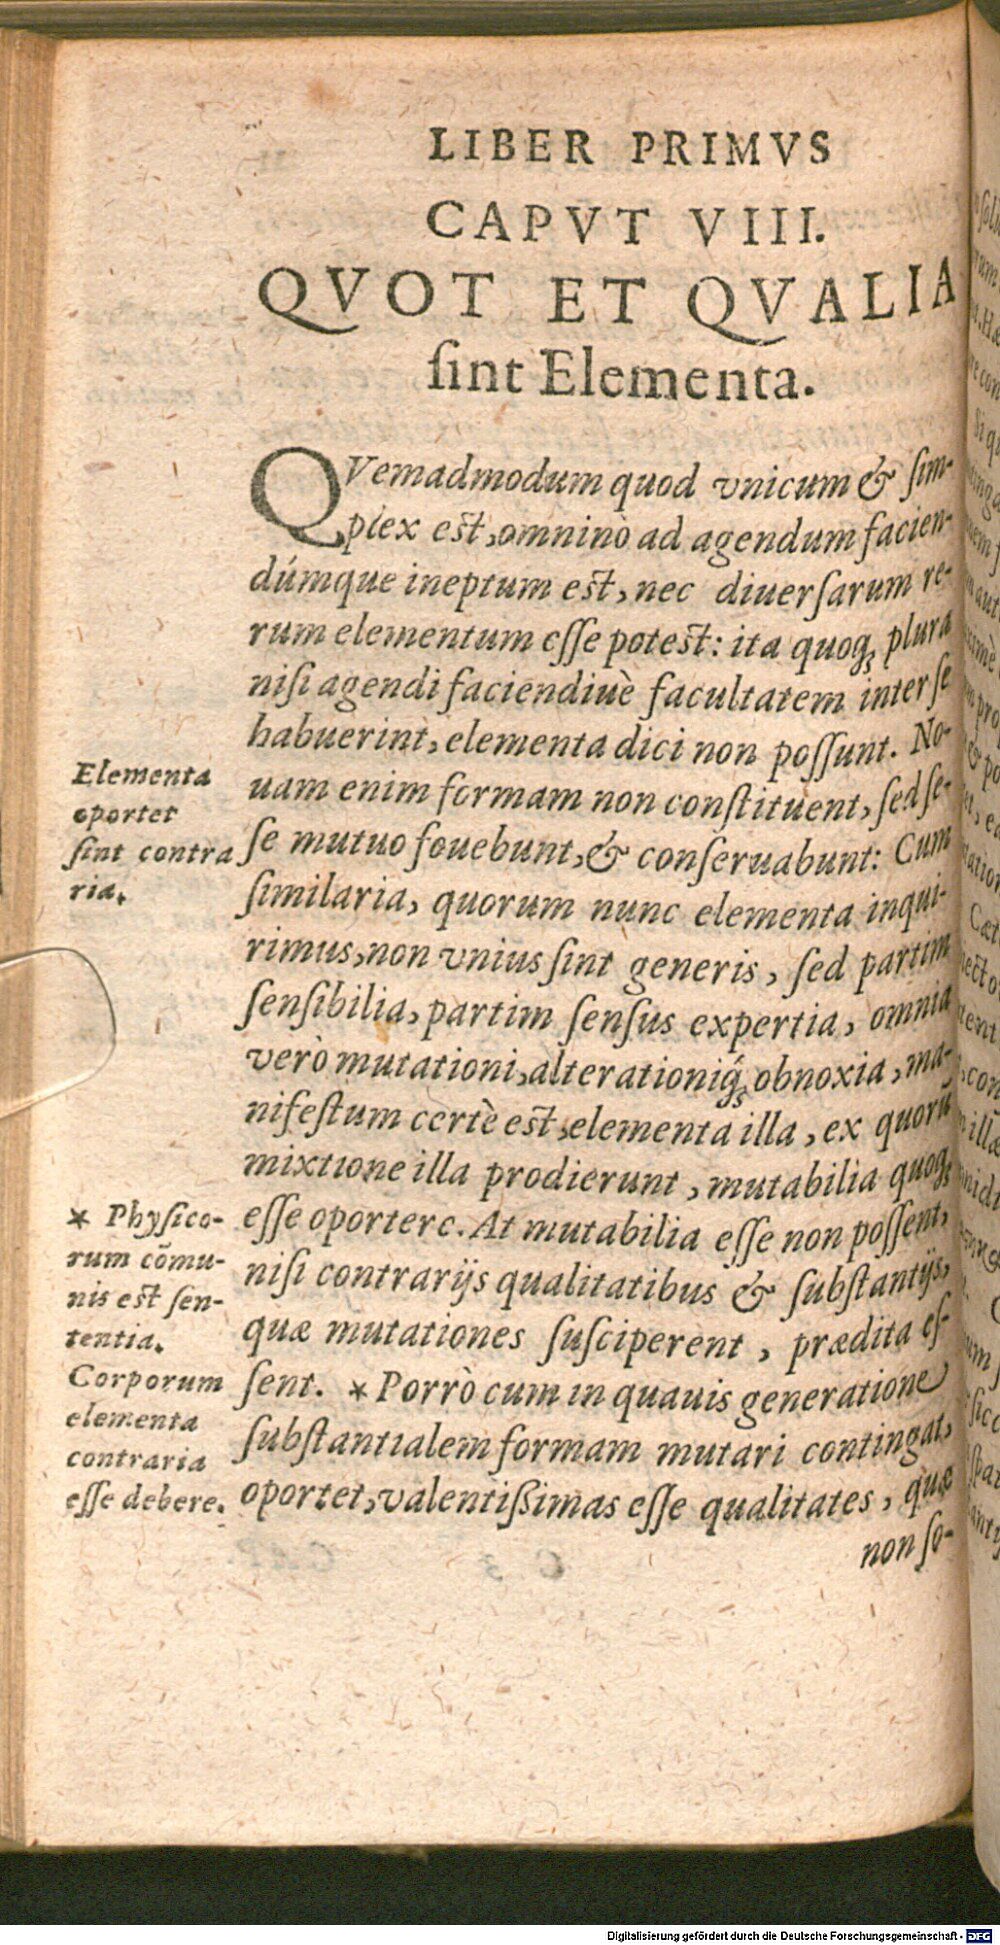 LIBER PRIMVS
CAPVT VIII.
QVOT ET QVALIA
ſint Elementa.
QVemadmodum quod vnicum & ſim-
plex eſt, omninò ad agendum facien-
dúmque ineptum eſt, nec diuerſarum re-
rum elementum eſſe poteſt: ita quoq; plura
niſi agendi faciendiuè facultatem inter ſe
habuerint, elementa dici non poſſunt. No-
uam enim formam non conſtituent, ſed ſe-
ſe mutuo fouebunt, & conſeruabunt: Cum
ſimilaria, quorum nunc elementa inqui-
rimus, non vnius ſint generis, ſed partim
ſenſibilia, partim ſenſus expertia, omnia
verò mutationi, alterationiq́; obnoxia, ma-
nifeſtum certè eſt, elementa illa, ex quorũ
mixtione illa prodierunt, mutabilia quoq;
eſſe oportere. At mutabilia eſſe non poſſent,
niſi contrarijs qualitatibus & ſubſtantijs,
quæ mutationes ſuſciperent, prædita eſ-
ſent. * Porrò cum in quauis generatione
ſubſtantialem formam mutari contingat,
oportet, valentiſſimas eſſe qualitates, quæ
non ſo-
Elementa
oportet
ſint contra
ria.
* Phyſico-
rum cõmu-
nis eſt ſen-
tentia.
Corporum
elementa
contraria
eſſe debere.
Digitalisierung gefördert durch die Deutsche Forschungsgemeinschaft - DFG